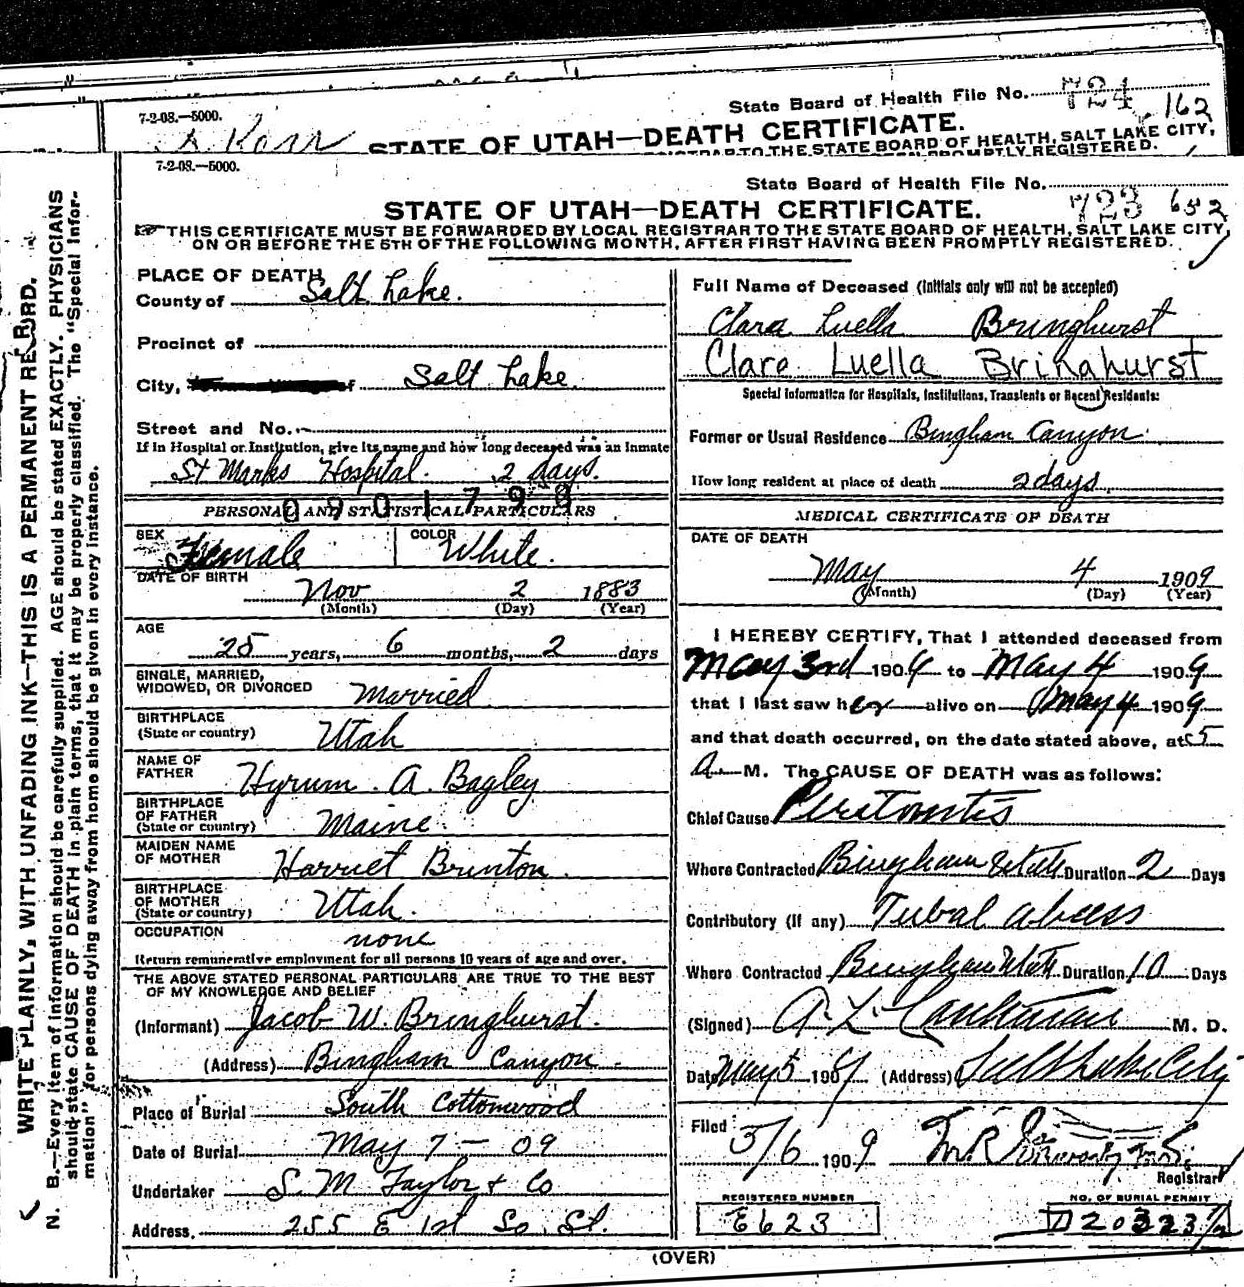 7-2-08.—5000.
State Board of Health File No. 724 162
STATE OF UTAH—DEATH CERTIFICATE.
TRAR TO THE STATE BOARD OF HEALTH, SALT LAKE CITY,
PROMPTLY REGISTERED.
7-2-08.—5000.
State Board of Health File No. 723 652
STATE OF UTAH—DEATH CERTIFICATE.
THIS CERTIFICATE MUST BE FORWARDED BY LOCAL REGISTRAR TO THE STATE BOARD OF HEALTH, SALT LAKE CITY,
ON OR BEFORE THE 5TH OF THE FOLLOWING MONTH, AFTER FIRST HAVING BEEN PROMPTLY REGISTERED.
WRITE PLAINLY, WITH UNFADING INK—THIS IS A PERMANENT RECORD.
N. B.—Every item of information should be carefully supplied. AGE should be stated EXACTLY. PHYSICIANS
should state CAUSE OF DEATH in plain terms, that it may be properly classified. The "Special Infor-
mation" for persons dying away from home should be given in every instance.
PLACE OF DEATH
County of Salt Lake.
Precinct of
City, of Salt Lake
Street and No.
If in Hospital or Institution, give its name and how long deceased was an Inmate
St Marks Hospital. 2 days.
PERSONAL AND STATISTICAL PARTICULARS
SEX Female COLOR White.
DATE OF BIRTH
Nov 2 1883
(Month) (Day) (Year)
AGE
25 years, 6 months, 2 days
SINGLE, MARRIED,
WIDOWED, OR DIVORCED Married
BIRTHPLACE
(State or country) Utah
NAME OF
FATHER Hyrum A. Bagley
BIRTHPLACE
OF FATHER
(State or country) Maine.
MAIDEN NAME
OF MOTHER Harriet Brinton.
BIRTHPLACE
OF MOTHER
(State or country) Utah.
OCCUPATION none
Return remunerative employment for all persons 10 years of age and over.
THE ABOVE STATED PERSONAL PARTICULARS ARE TRUE TO THE BEST
OF MY KNOWLEDGE AND BELIEF
(Informant) Jacob W. Bringhurst.
(Address) Bingham Canyon
Place of Burial South Cottonwood
Date of Burial May 7 — 09
Undertaker S. M. Taylor & Co
Address. 255 E 1st So. St.
Full Name of Deceased (Initials only will not be accepted)
Clara Luella Bringhurst
Clara Luella Bringhurst
Special Information for Hospitals, Institutions, Transients or Recent Residents:
Former or Usual Residence Bingham Canyon
How long resident at place of death 2 days
MEDICAL CERTIFICATE OF DEATH
DATE OF DEATH
May 4 1909
(Month) (Day) (Year)
I HEREBY CERTIFY, That I attended deceased from
May 3rd 190 to May 4 1909
that I last saw her alive on May 4 1909
and that death occurred, on the date stated above, at 5
A. M. The CAUSE OF DEATH was as follows:
Chief Cause Peratonitis
Where Contracted Bingham Utah Duration 2 Days
Contributory (if any) Tubal abcess
Where Contracted Bingham Utah Duration 10 Days
(Signed) A. L. M. D.
Date May 5 190 (Address) Salt Lake City
Filed 5/6 1909
Registrar
REGISTERED NUMBER
E623
NO. OF BURIAL PERMIT
D20323 1/2
(OVER)